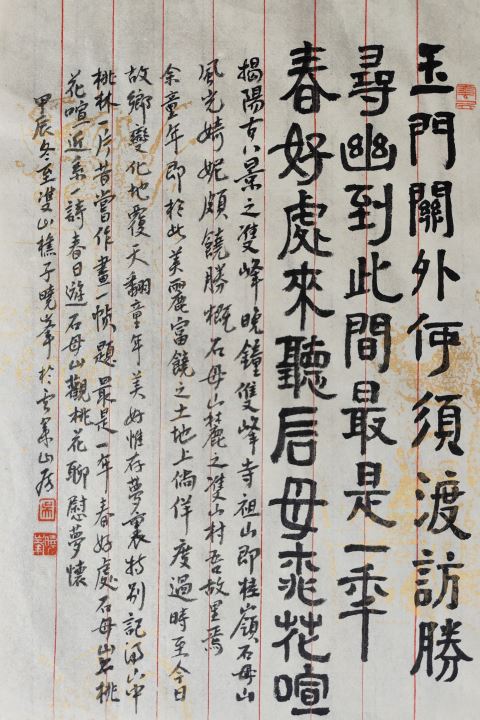 玉門關外何須渡訪勝
尋幽到此間最是一年
春好處來聽石母桃花喧
揭陽古八景之雙峰晚鐘雙峰寺祖山即桂嶺石母山
風光妮頗饒勝概石母山麓之雙山村吾故里焉
余童年即於此美麗富饒之土地上倘佯度過時至今日
故鄉變化地覆天翻童年美好惟存夢裏特別記得山中
桃林一片昔嘗作畫一幀題最是一年春好處石母山桃
花喧近系一詩春日遊石母山觀桃花聊慰夢懷
甲辰冬至雙山樵子曉峯於山房